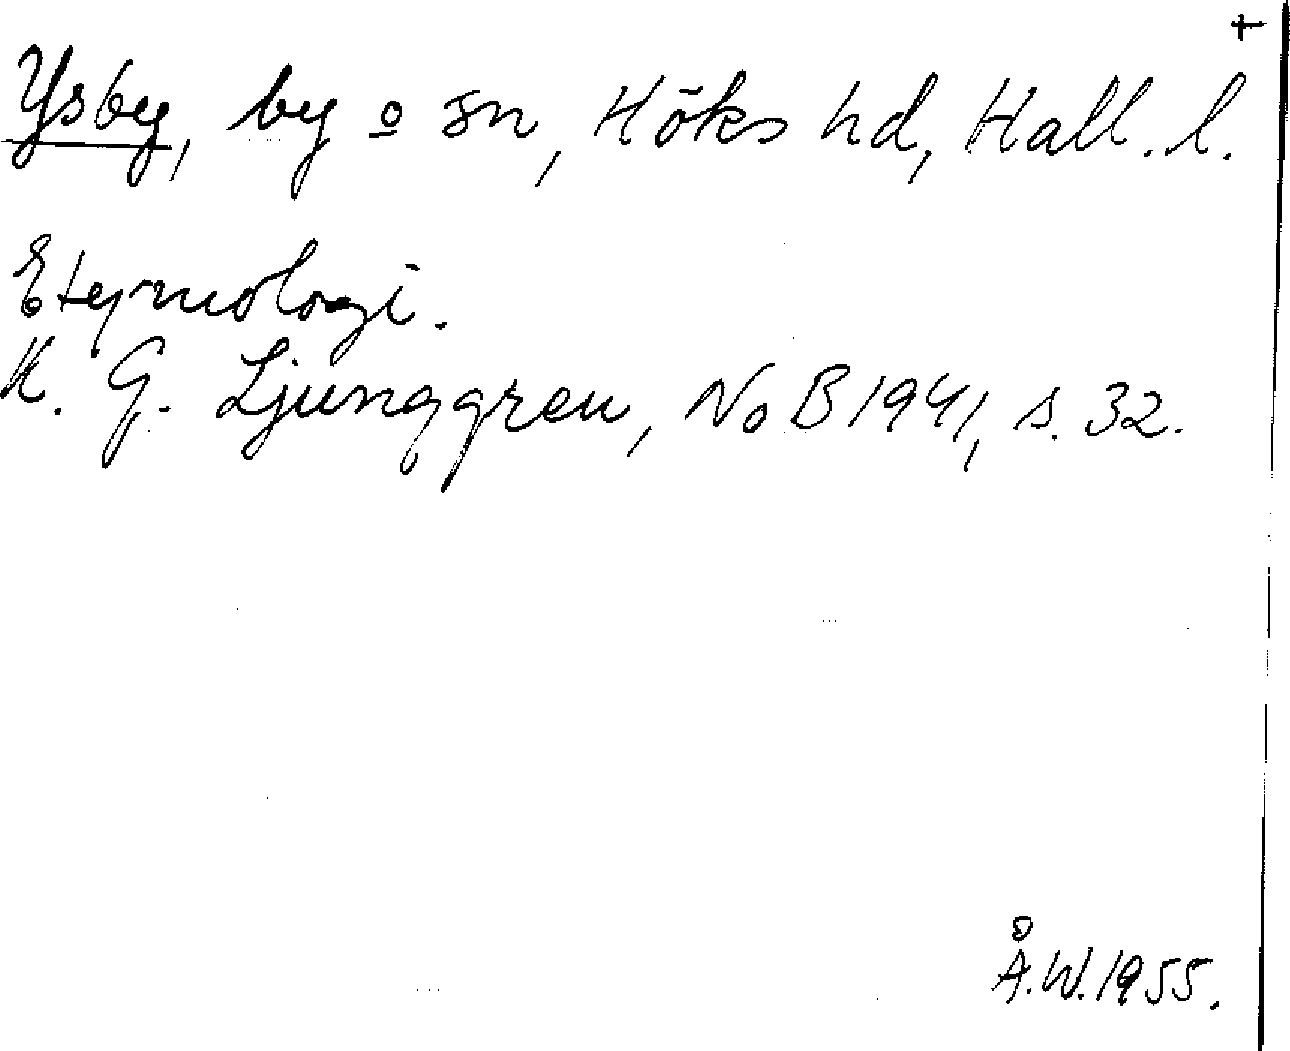 †
Ysby, by o sn, Höks hd, Hall. l.
Etymologi.
K. G. Ljunggren, NoB 1941, s. 32.
Å.W. 1955.